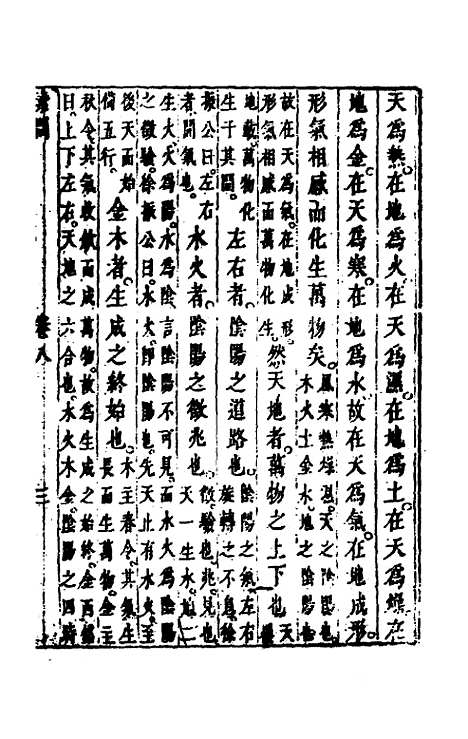 天爲熱在地爲火在天爲濕在地爲土在天爲燥在
地爲金在天爲寒在地爲水故在天爲氣在地成形
形氣相感而化生萬物矣風寒熱濕燥天之陰陽也
木火土金水地之陰陽也
故在天爲氣在地成形
形氣相感而萬物化生然天地者萬物之上下也天覆
地載萬物化
生于其間左右者陰陽之道路也陰陽之氣左右
旋轉之不息徐
振公曰左右
者間氣也水火者陰陽之徵兆也徵驗也兆見也
天一生水地二
生火火爲陽水爲陰言陰陽不可見而水火爲陰陽
之徵驗徐振公曰水火卽陰陽也先天止有水火至
後天而始
備五行金木者生成之終始也木主春令其氣生
長而生萬物金主
秋令其氣收斂而成萬物故爲生成之始終金西銘
曰上下左右天地之六合也水火木金陰陽之四時
素問 卷八 三